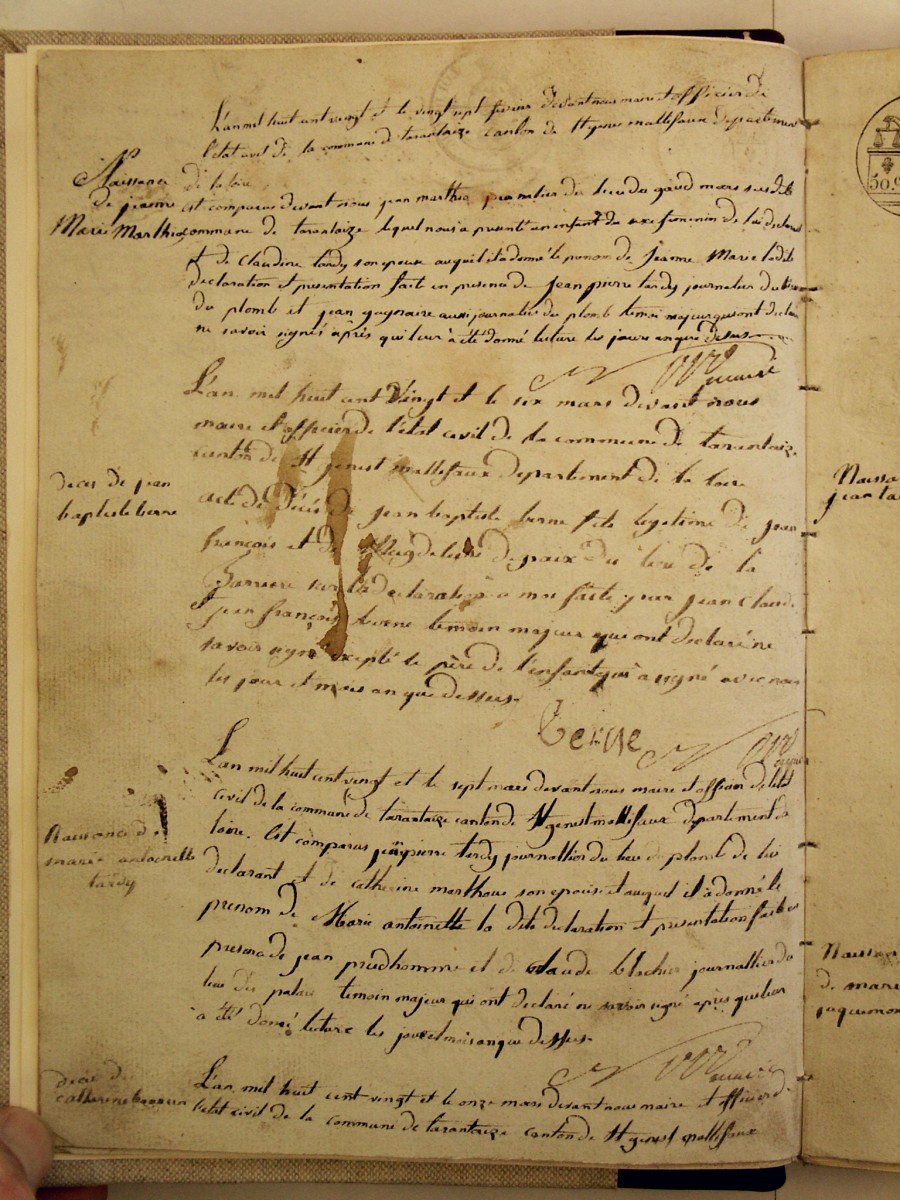 L'an mil huit cent vingt et le vingt sept fevrier devant nous maire et officier de
l'etat civil de la commune de tarantaize canton de St genes mallifaux departement
de la loire
Naissance
de jeanne
Marie Marthia
est comparus devant nous jean marthia journalier du lieu du grand mars susdite
commune de tarantaize lequel nous a presenté un enfant du sexe feminin de lui declarant
et de Claudine tardy son epouse auquel il a donné le prenom de Jeanne Marie ladite
declaration et presentation fait en presence de jean pierre tardy journalier du lieu
du plomb et jean gagnaire aussi journalier du plomb temoin majeur qui ont declaré
ne savoir signés après qui leur à été donné lecture les jours an que dessus
maire
L'an mil huit cent vingt et le six mars devant nous
maire et officier de l'état civil de la commune de tarantaize
canton de St genest mallifaux departement de la loire
deces de jean
baptiste berne
acte de décés de jean baptiste berne fils legitime de jean
françois et de Magdeleine depaix du lieu de la
Barriere sur la declaration à moi faite par jean Claude
jean françois berne temoin majeur qui ont declaré ne
savoir signé excepté le père de l'enfant qui à signé avec nous
les jour et mois an que dessus
berne
L'an mil huit cent vingt et le sept mars devant nous maire et officier de l'etat
civil de la commune de tarantaize canton de St genest mallifaux departement de
loire. Est comparus jean pierre tardy journallier du lieu de plomb de lui
Naissance de
marie antoinette
tardy
declarant et de catherine marthoud son epouse et auquel il à donné le
prenom de Marie antoinette la dite declaration et presentation faite en
presence de jean prudhomme et de Claude blachier journallier du
lieu des palais temoin majeur qui ont declaré ne savoir signé après que leur
a été donné lecture les jour et mois an que dessus.
maire
deces de
catherine
L'an mil huit cent vingt et le onze mars devant nous maire et officier de
l'etat civil de la commune de tarantaize canton de St genest mallifaux
Naissa
jean ta
Naissan
de marie
jaquemon
50.